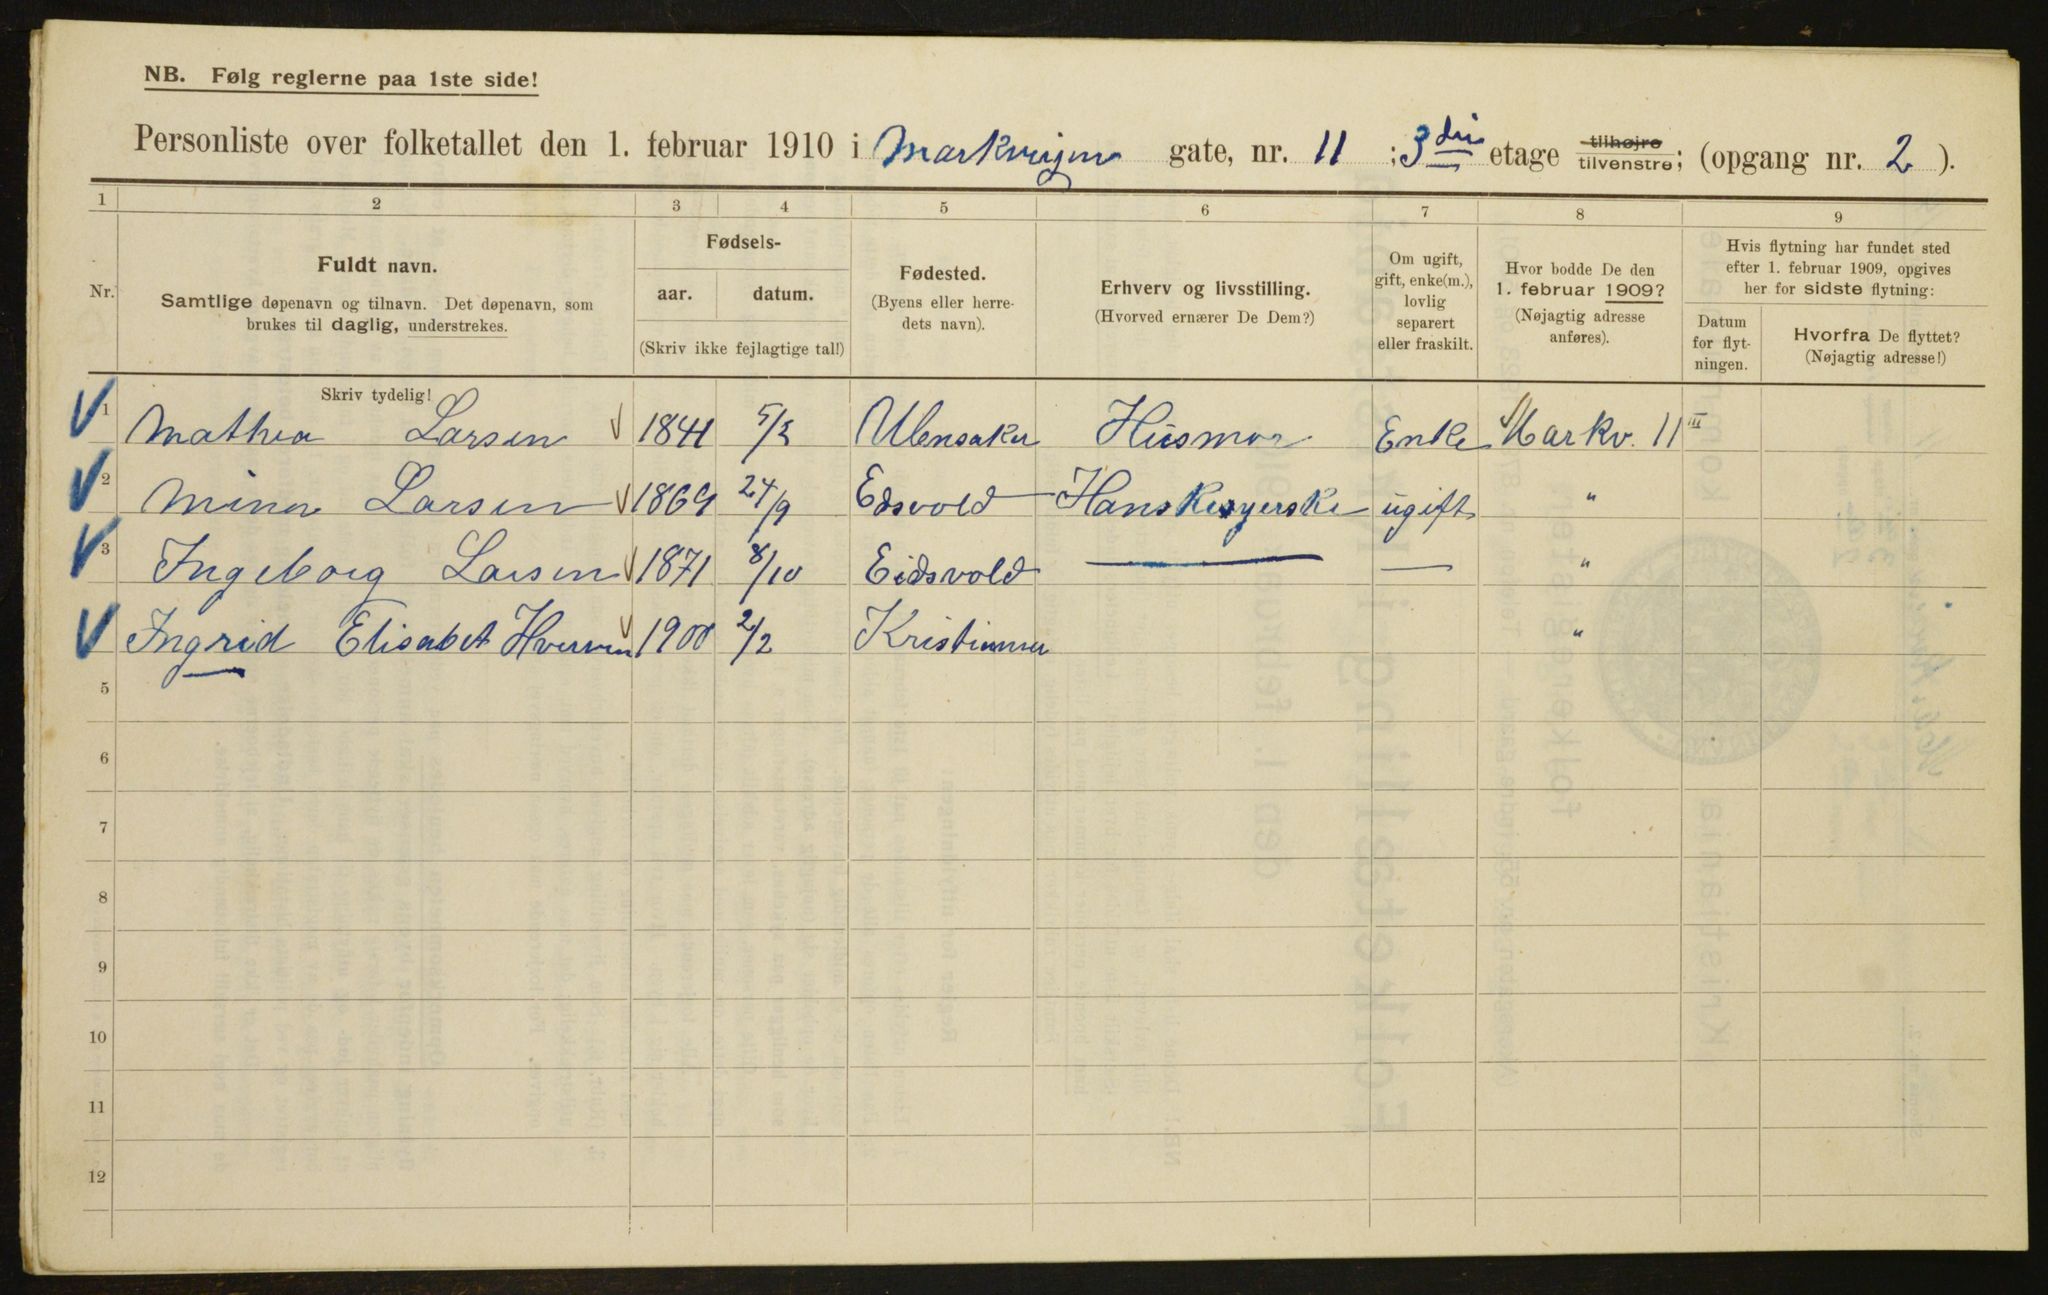 NB. Følg reglerne paa 1ste side!
Personliste over folketallet den 1. februar 1910 i Markveyen gate, nr. 11 ; 3die etage tilhøjre tilvenstre; (opgang nr. 2 ).
1 2 3 4 5 6 7 8 9
Nr.
Fuldt navn.
Samtlige døpenavn og tilnavn. Det døpenavn, som
brukes til daglig, understrekes.
Fødsels-
aar. datum.
(Skriv ikke fejlagtige tal!)
Fødested.
(Byens eller herre-
dets navn).
Erhverv og livsstilling.
(Hvorved ernærer De Dem?)
Om ugift,
gift, enke(m.),
lovlig
separert
eller fraskilt.
Hvor bodde De den
1. februar 1909?
(Nøjagtig adresse
anføres).
Hvis flytning har fundet sted
efter 1. februar 1909, opgives
her for sidste flytning:
Datum
for flyt-
ningen.
Hvorfra De flyttet?
(Nøjagtig adresse!)
Skriv tydelig!
1 Mathea Larsen 1841 Ulensaker Husmor Enke Markv. 11 III
2 Mina Larsen 1869 24/9 Edsvold ugift "
3 Ingeborg Larsen 1871 8/10 Eidsvold — — "
Ingrid Elisabet 1900 2/2 Kristiania "
5
6
7
8
9
10
11
12